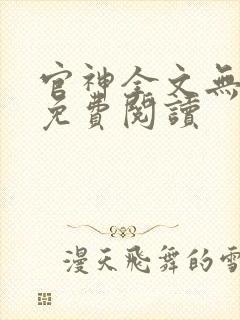 官神全文無
免費閱讀
漫天飛舞的雪